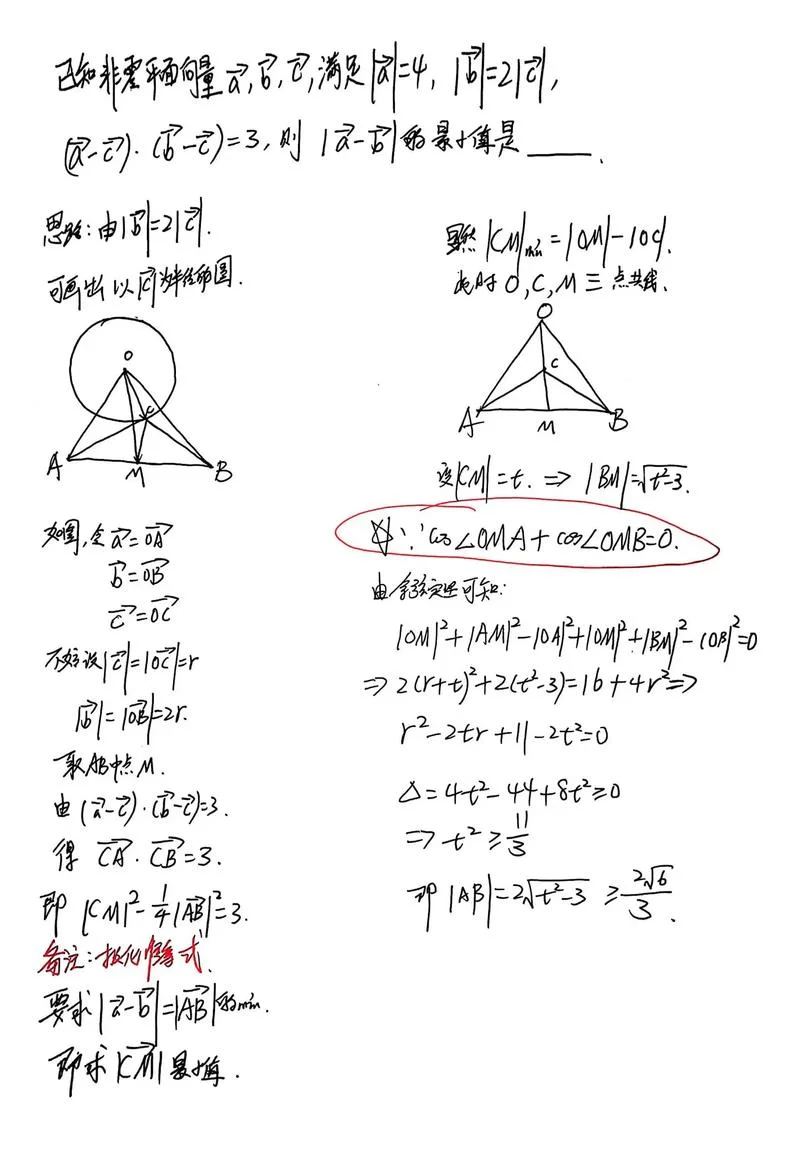 已知非零平面向量a⃗, b⃗, c⃗, 满足|a⃗|=4, |b⃗|=2|c⃗|,
(a⃗-c⃗)·(b⃗-c⃗)=3, 则 |a⃗-b⃗|的最小值是____.
思路: 由|b⃗|=2|c⃗|.
可画出以|c⃗|为半径的圆.
O
C
A
M
B
如图, 令a⃗=OA⃗
b⃗=OB⃗
c⃗=OC⃗
不妨设|c⃗|=|OC⃗|=r
|b⃗|=|OB⃗|=2r.
取AB中点M.
由(a⃗-c⃗)·(b⃗-c⃗)=3.
得 CA⃗·CB⃗=3.
即 |CM⃗|²-1/4|AB⃗|²=3.
备注: 极化恒等式.
要求|a⃗-b⃗|=|AB⃗|的min.
即求|CM⃗|最小值.
显然|CM|min=|OM|-|OC|.
此时O, C, M三点共线.
O
C
A
M
B
设|CM|=t. ⇒ |BM|=√(t²-3).
☆∵cos∠OMA+cos∠OMB=0.
由余弦定理可知:
|OM|²+|AM|²-|OA|²+|OM|²+|BM|²-|OB|²=0
⇒2(r+t)²+2(t²-3)=16+4r²⇒
r²-2tr+11-2t²=0
Δ=4t²-44+8t²≥0
⇒t²≥11/3
即|AB|=2√(t²-3)≥2√6/3.